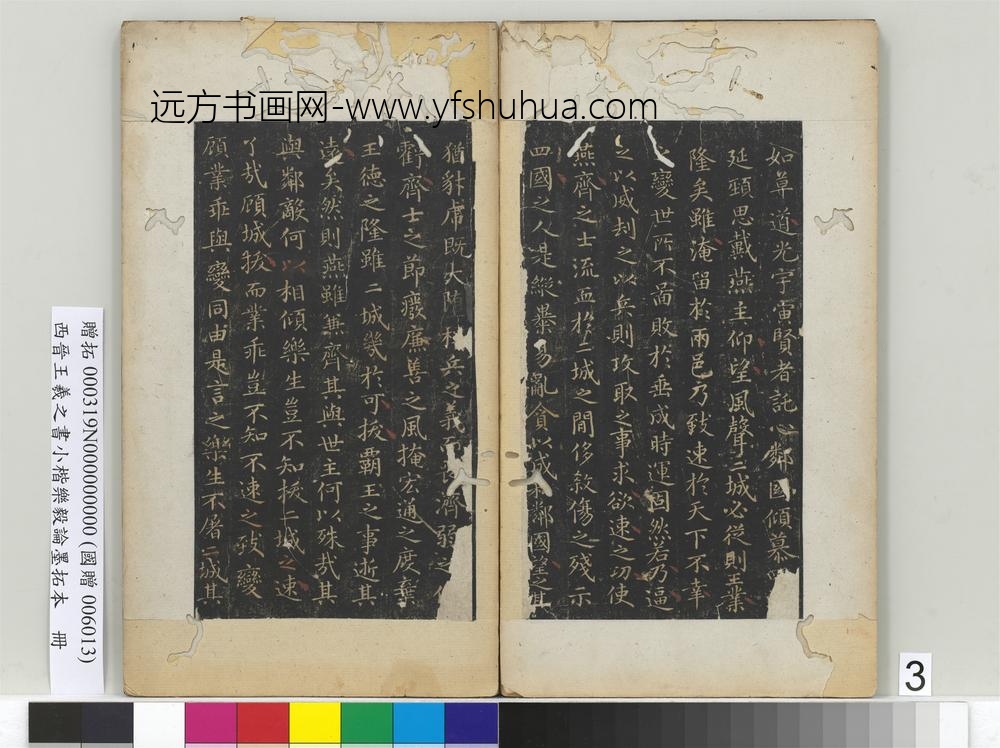 远方书画网-www.yfshuhua.com
如草道光宇宙賢者託心鄰國傾慕
延頸思戴燕主仰望風聲二城必從則王業
隆矣雖淹留於兩邑乃致速於天下不幸
變世所不啚敗於垂成時運固然若乃逼
之以威刦之以兵則攻取之事求欲速之功使
燕齊之士流血於二城之間侈敘傷之殘示
四國之人是縱暴易亂貪以成私鄰國望之其
猶豺虎既大墮稱兵之義而喪濟弱之仁
虧齊士之節癈廉善之風掩宏通之度棄
王德之隆雖二城幾於可拔霸王之事逝其
遠矣然則燕雖兼齊其與世主何以殊哉其
與鄰敵何以相傾樂生豈不知拔二城之速
了哉顧城拔而業乖豈不知不速之致變
顧業乖與變同由是言之樂生不屠二城其
贈拓 000319N000000000 (國贈 006013)
西晉王羲之書小楷樂毅論墨拓本 冊
3